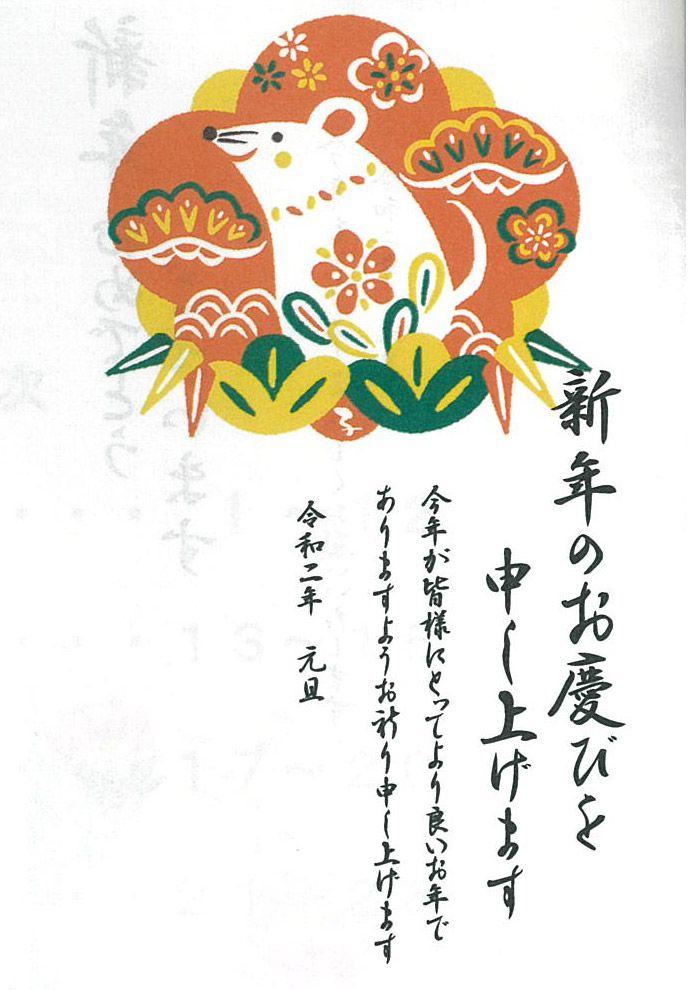 新年のお慶びを
申し上げます
今年が皆様にとってより良いお年で
ありますようお祈り申し上げます
令和二年 元旦
子